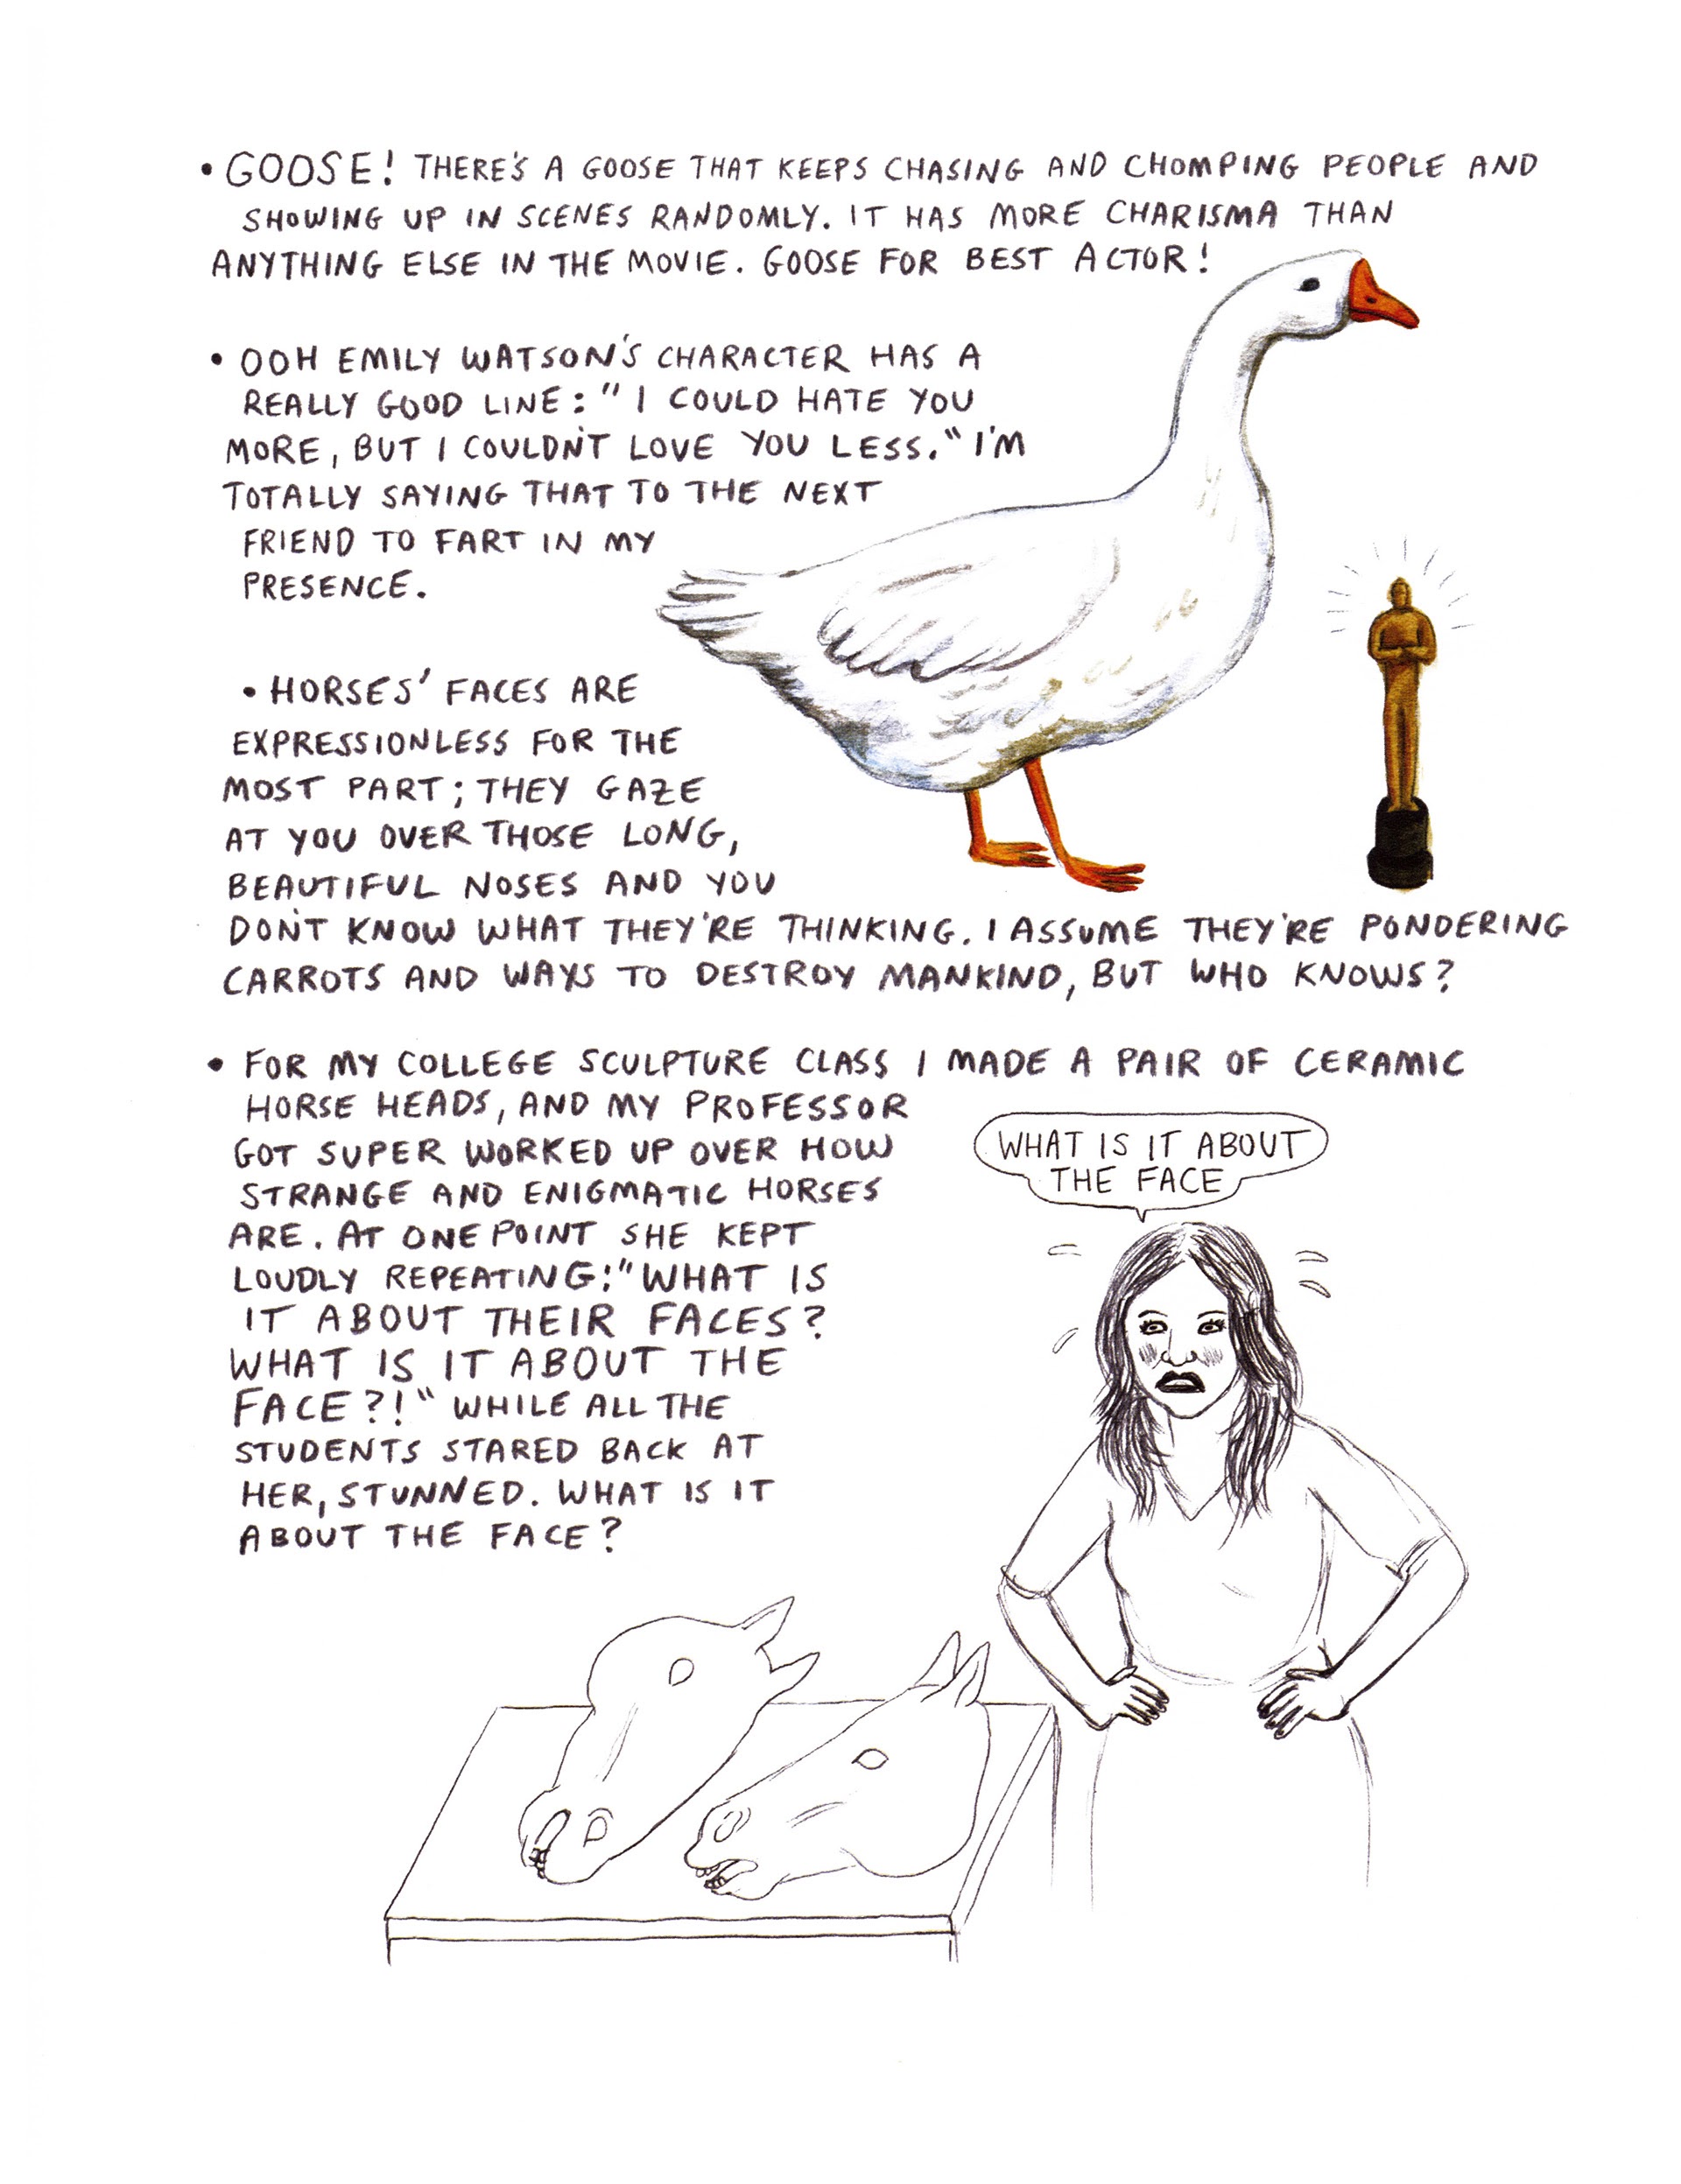 • GOOSE! THERE'S A GOOSE THAT KEEPS CHASING AND CHOMPING PEOPLE AND
SHOWING UP IN SCENES RANDOMLY. IT HAS MORE CHARISMA THAN
ANYTHING ELSE IN THE MOVIE. GOOSE FOR BEST ACTOR!
• OOH EMILY WATSON'S CHARACTER HAS A
REALLY GOOD LINE: "I COULD HATE YOU
MORE, BUT I COULDN'T LOVE YOU LESS." I'M
TOTALLY SAYING THAT TO THE NEXT
FRIEND TO FART IN MY
PRESENCE.
• HORSES' FACES ARE
EXPRESSIONLESS FOR THE
MOST PART; THEY GAZE
AT YOU OVER THOSE LONG,
BEAUTIFUL NOSES AND YOU
DON'T KNOW WHAT THEY'RE THINKING. I ASSUME THEY'RE PONDERING
CARROTS AND WAYS TO DESTROY MANKIND, BUT WHO KNOWS?
• FOR MY COLLEGE SCULPTURE CLASS I MADE A PAIR OF CERAMIC
HORSE HEADS, AND MY PROFESSOR
GOT SUPER WORKED UP OVER HOW
STRANGE AND ENIGMATIC HORSES
ARE. AT ONE POINT SHE KEPT
LOUDLY REPEATING: "WHAT IS
IT ABOUT THEIR FACES?
WHAT IS IT ABOUT THE
FACE?!" WHILE ALL THE
STUDENTS STARED BACK AT
HER, STUNNED. WHAT IS IT
ABOUT THE FACE?
WHAT IS IT ABOUT
THE FACE